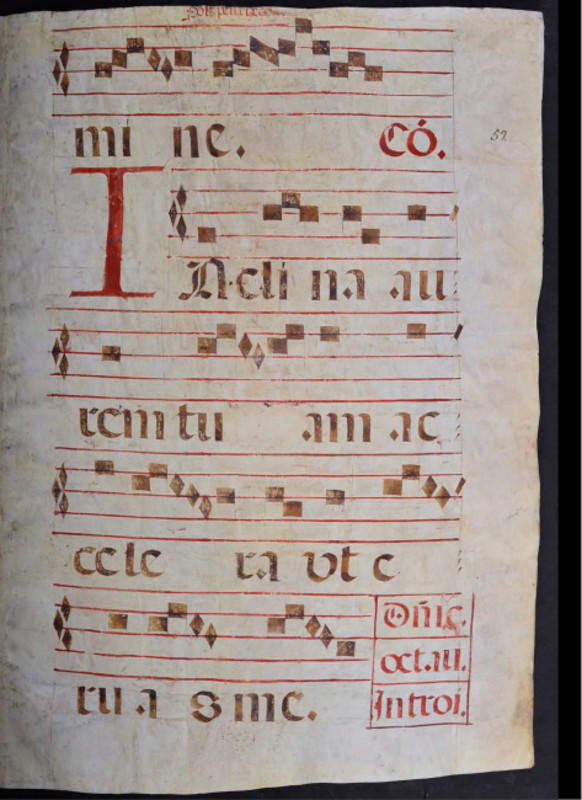 52
mi ne. Có.
INcli na au
rem tu am ac
cele ra vt e
ru a s me.
Dñic.
octau.
Introi.